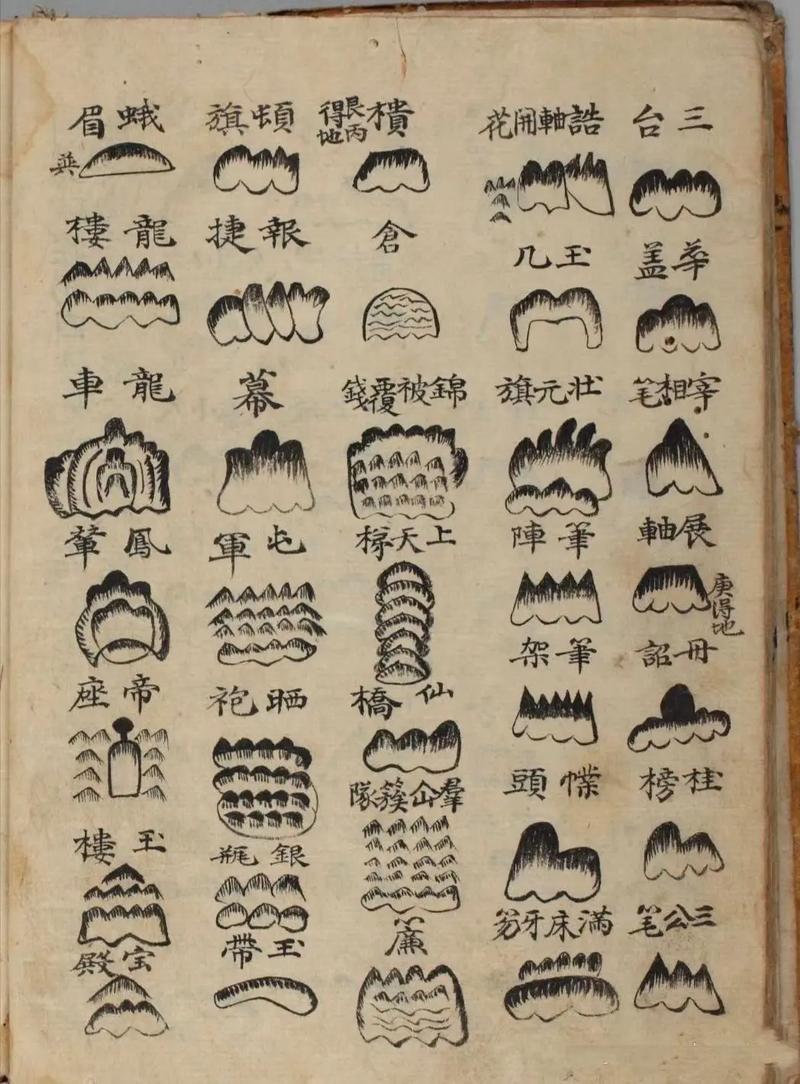 三台
華盖
宰相笔
展軸
庚得地
冊詔
桂榜
三公笔
誥軸開花
玉几
壮元旗
筆陣
筆架
幞頭
滿床牙笏
樻
艮丙得地
倉
錦被覆錢
上天梯
仙橋
羣仙簇隊
簾
頓旗
報捷
幕
屯軍
晒袍
銀瓶
玉帶
蛾眉
龍樓
龍車
鳳輦
帝座
玉樓
宝殿